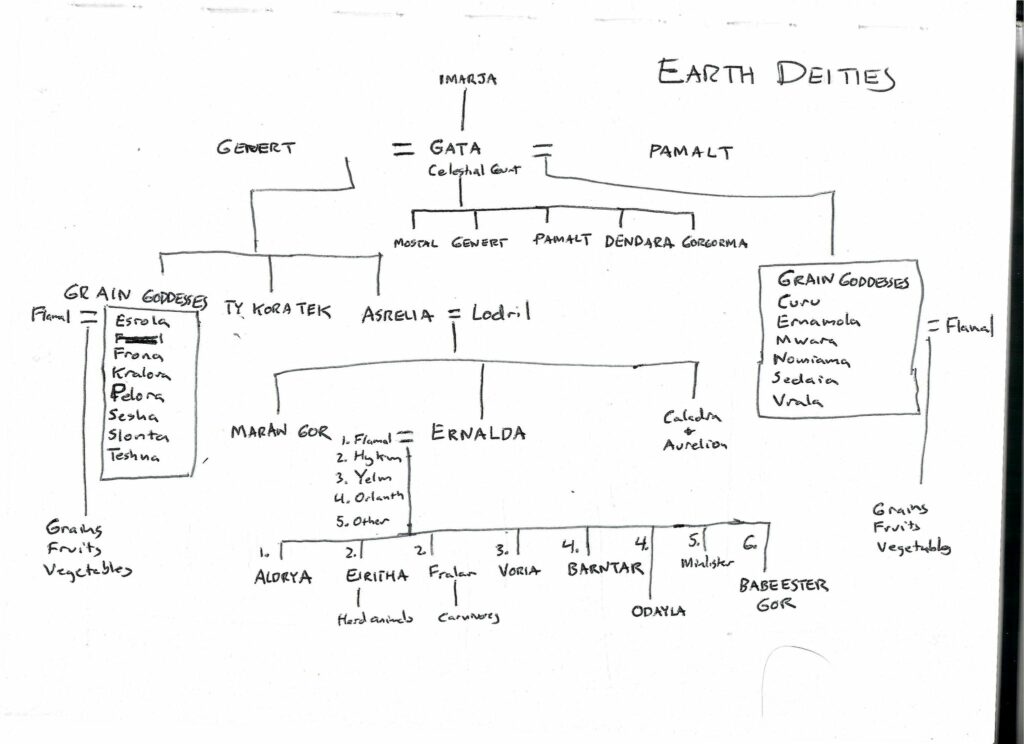 EARTH DEITIES
IMARJA
GENERT = GATA = PAMALT
Celestial Court
MOSTAL GENERT PAMALT DENDARA GORGORMA
GRAIN GODDESSES
Flamal =
Esrola
Frona
Kralora
Pelora
Sesha
Slonta
Teshna
TY KORA TEK
ASRELIA = Lodril
GRAIN GODDESSES
Curu
Ernamola
Mwara
Nomiama
Sedaia
Vrala
= Flamal
MARAN GOR
1. Flamal = ERNALDA
2. Hykim
3. Yelm
4. Orlanth
5. Other
Caladra
+
Aurelion
Grains
Fruits
Vegetables
Grains
Fruits
Vegetables
1. 2. 2 3. 4. 4. 5. 6.
ALDRYA EIRITHA Fralar VORIA BARNTAR Minlister
BABEESTER
GOR
Herd animals Carnivores ODAYLA